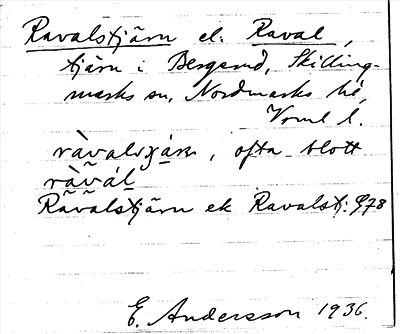 Ravalstjärn el. Raval,
tjärn i Bergerud, Skilling-
marks sn, Nordmarks hd,
Vrml l.
ràvalsçá̱rn, ofta blott
ràvál
Ravalstjärn ek Ravalstj: G78
E. Andersson 1936.